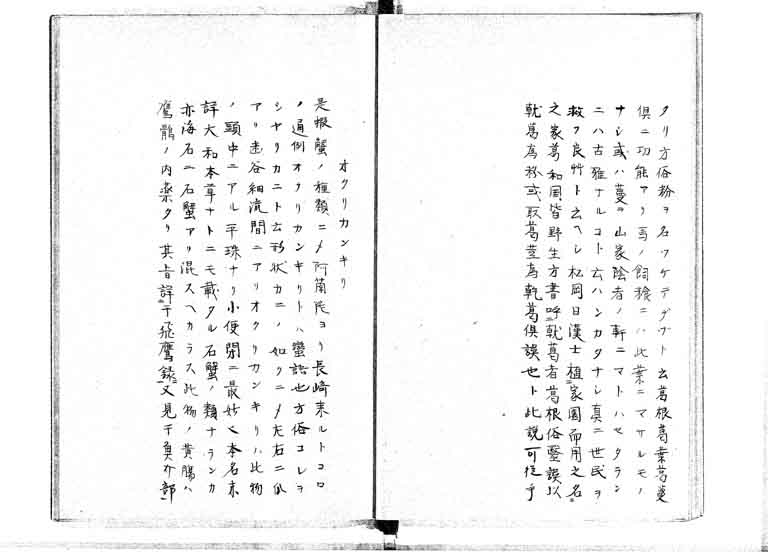 クリ方俗粉ヲ名ツケテクズナト云葛根葛葉葛蔓
倶ニ功能アリ馬ノ飼穐ニハ此葉ニマサルモノ
ナシ或ハ蔓ヲ山家陰者ノ軒ニマトハセタラン
ニハ古雅ナルコト云ハンカタナシ真ニ世民ヲ
救フ良艸ト云ヘシ松岡曰漢土植家園而用之名
之家葛和国皆野生方書呼乾葛者葛根俗医誤以
乾葛為粉或取葛莖為乾葛倶誤也ト此説可従乎
オクリカンキリ
是報蟹ノ種類ニメ阿蘭陀ヨリ長崎来ルトコロ
ノ通例オクリカンキリトハ蠻語也方俗コレヲ
シヤリカニト云形状カニノ如クニメ左右ニ爪
アリ遠谷細流間ニアリオクリカンキリハ此物
ノ頭中ニアル平珠ナリ小便閉ニ最妙也本名未
詳大和本草ナトニモ載タル石蟹ノ類ナランカ
亦海石ニ石蟹アリ混スヘカラス此物ノ黄腸ハ
鷹鶻ノ内薬タリ其旨詳于飛鷹録又見于負介部